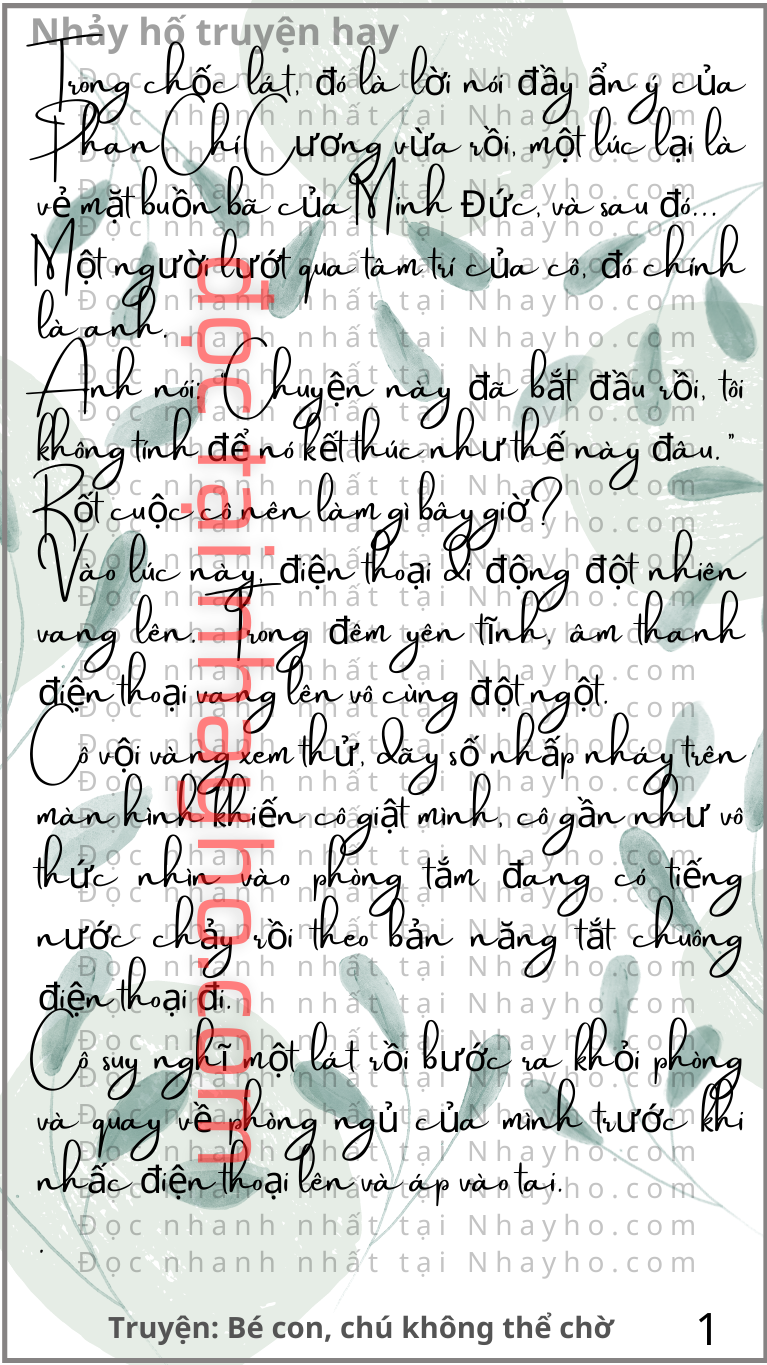 Nhảy hố truyện hay
Trong chốc lát, đó là lời nói đầy ẩn ý của
Phan Chí Cương vừa rồi, một lúc lại là
vẻ mặt buồn bã của Minh Đức, và sau đó...
Một người lướt qua tâm trí của cô, đó chính
là anh.
Anh nói: "Chuyện này đã bắt đầu rồi, tôi
không tính để nó kết thúc như thế này đâu."
Rốt cuộc cô nên làm gì bây giờ?
Vào lúc này, điện thoại di động đột nhiên
vang lên. Trong đêm yên tĩnh, âm thanh
điện thoại vang lên vô cùng đột ngột.
Cô vội vàng xem thử, dãy số nhấp nháy trên
màn hình khiến cô giật mình, cô gần như vô
thức nhìn vào phòng tắm đang có tiếng
nước chảy rồi theo bản năng tắt chuông
điện thoại đi.
Cô suy nghĩ một lát rồi bước ra khỏi phòng
và quay về phòng ngủ của mình trước khi
nhấc điện thoại lên và áp vào tai.
.
đọc tại nhayho.com
Đọc nhanh nhất tại Nhayho.com
Đọc nhanh nhất tại Nhayho.com
Truyện: Bé con, chú không thể chờ
1